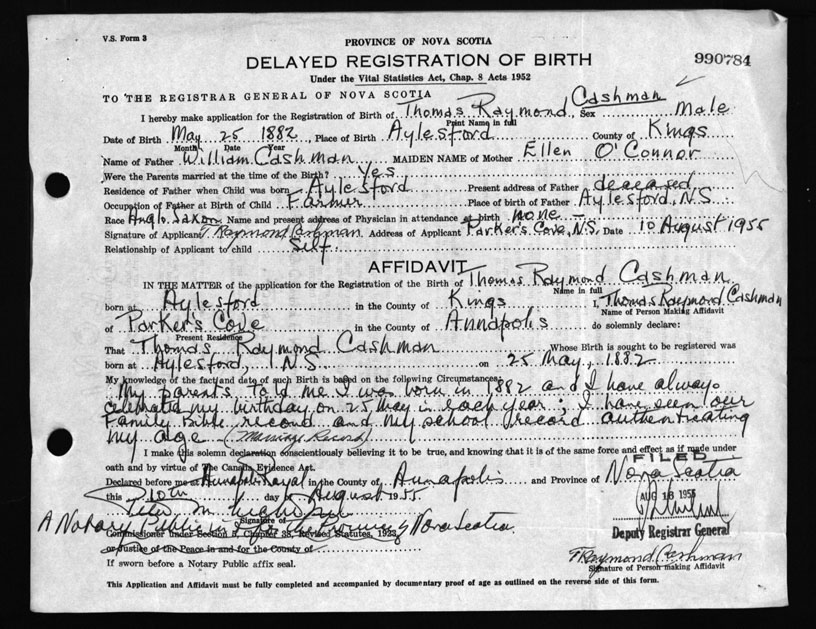 V.S. Form 3
PROVINCE OF NOVA SCOTIA
DELAYED REGISTRATION OF BIRTH
990784
Under the Vital Statistics Act, Chap. 8 Acts 1952
TO THE REGISTRAR GENERAL OF NOVA SCOTIA
I hereby make application for the Registration of Birth of Thomas Raymond Cashman, Sex Male
Print Name in full
Date of Birth May 25 1882, Place of Birth Aylesford County of Kings
Month Date Year
Name of Father William Cashman MAIDEN NAME of Mother Ellen O'Connor
Were the Parents married at the time of the Birth? Yes
Residence of Father when Child was born Aylesford Present address of Father deceased
Occupation of Father at Birth of Child Farmer Place of birth of Father Aylesford, N.S.
Race Anglo Saxon Name and present address of Physician in attendance at birth none –
Signature of Applicant T Raymond Cashman Address of Applicant Parker's Cove, N.S. Date 10 August 1955
Relationship of Applicant to child Self.
AFFIDAVIT
IN THE MATTER of the application for the Registration of the Birth of Thomas Raymond Cashman
Name in full
born at Aylesford in the County of Kings I, Thomas Raymond Cashman
Name of Person Making Affidavit
of Parker's Cove in the County of Annapolis do solemnly declare:
Present Residence
That Thomas Raymond Cashman Whose Birth is sought to be registered was
born at Aylesford, N.S. on 25 May, 1882
My knowledge of the fact and date of such Birth is based on the following Circumstances:
My parents told me I was born in 1882 and I have always
celebrated my birthday on 25 May in each year; I have seen our
Family Bible record and my school record authenticating
my age (Marriage Record)
I make this solemn declaration conscientiously believing it to be true, and knowing that it is of the same force and effect as if made under
oath and by virtue of The Canada Evidence Act.
Declared before me at Annapolis Royal in the County of Annapolis and Province of Nova Scotia
this 10th day of August 1955
FILED
AUG 18 1955
Peter M. Nicholson
Signature of
Deputy Registrar General
A Notary Public in & for the Province of Nova Scotia.
Commissioner under Section 8, Chapter 38, Revised Statutes, 1923
or Justice of the Peace in and for the County of
T Raymond Cashman
Signature of Person making Affidavit
If sworn before a Notary Public affix seal.
This Application and Affidavit must be fully completed and accompanied by documentary proof of age as outlined on the reverse side of this form.